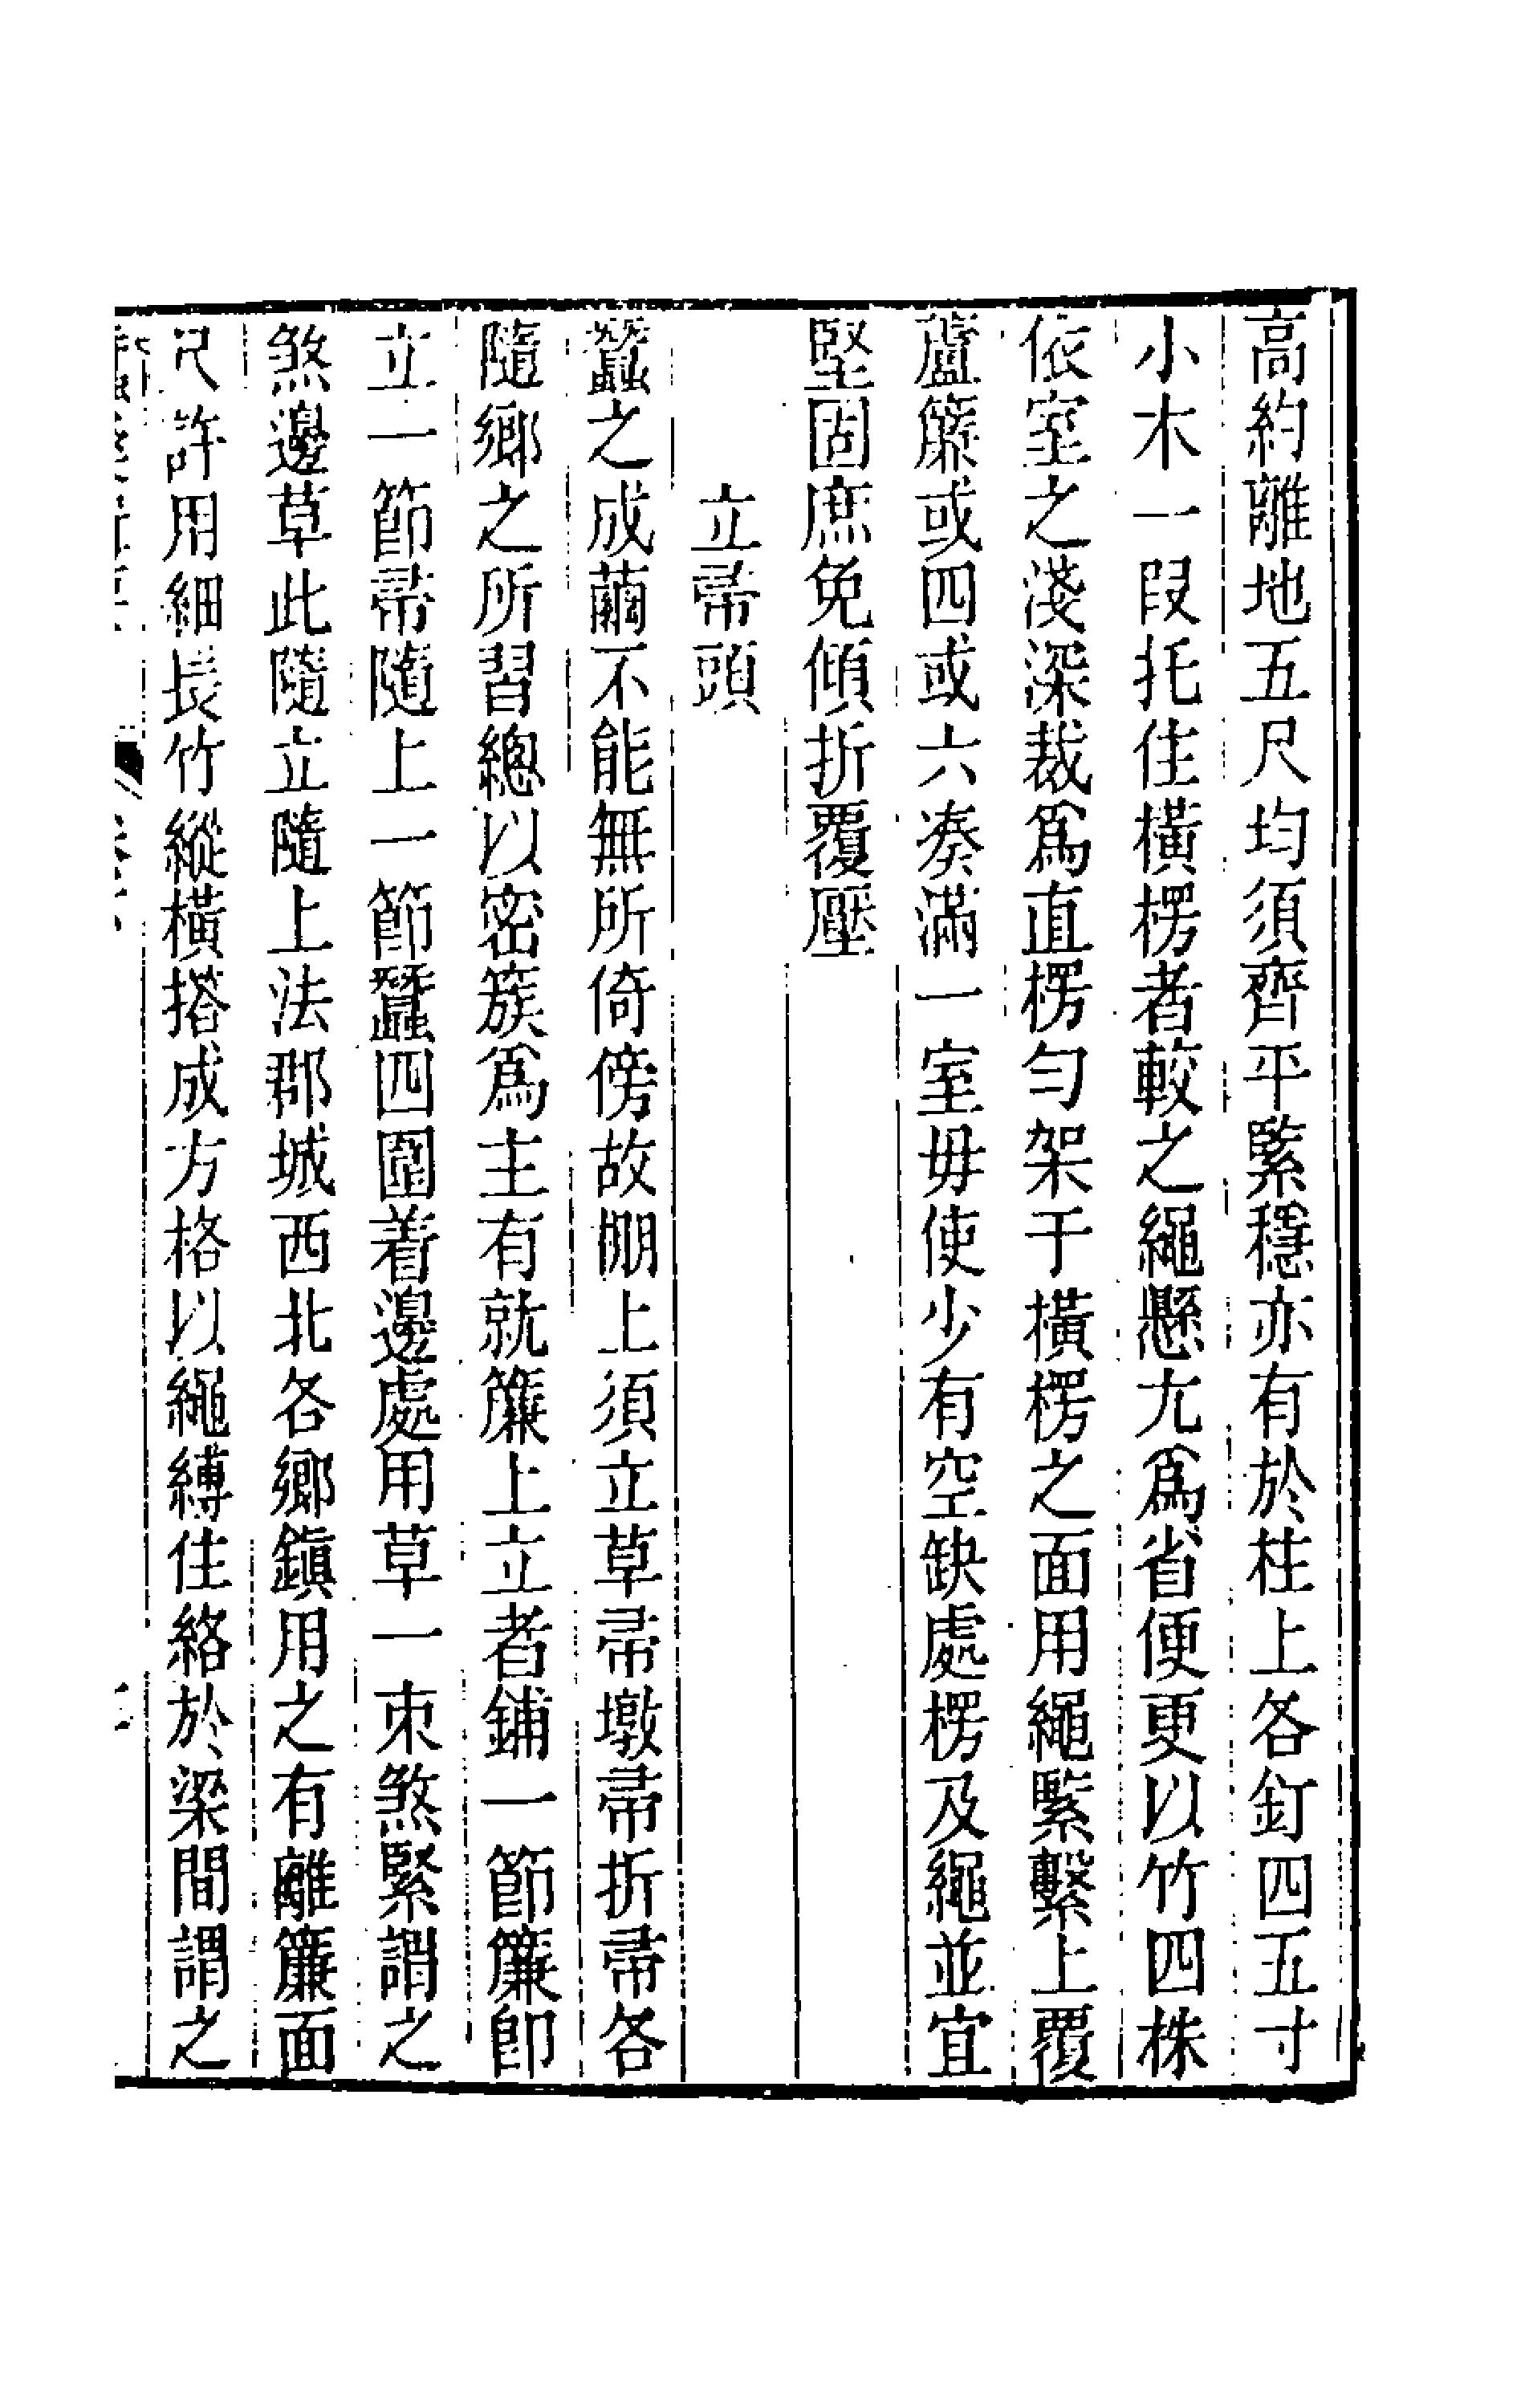 高約離地五尺均須齊平緊穩亦有於柱上各釘四五寸
小木一段托住橫楞者較之繩懸尤爲省便更以竹四株
依室之淺深裁爲直楞勻架于橫楞之面用繩緊繫上覆
蘆簾或四或六凑滿一室毋使少有空缺處楞及繩並宜
堅固庶免傾折覆壓
立帚頭
蠶之成繭不能無所倚傍故棚上須立草帚墩帚折帚各
隨鄉之所習總以密簇爲主有就簾上立者鋪一節簾卽
立一節帚隨上一節蠶四圍着邊處用草一束煞緊謂之
煞邊草此隨立隨上法郡城西北各鄉鎭用之有離簾面
尺許用細長竹縱橫搭成方格以繩縛住絡於梁間謂之